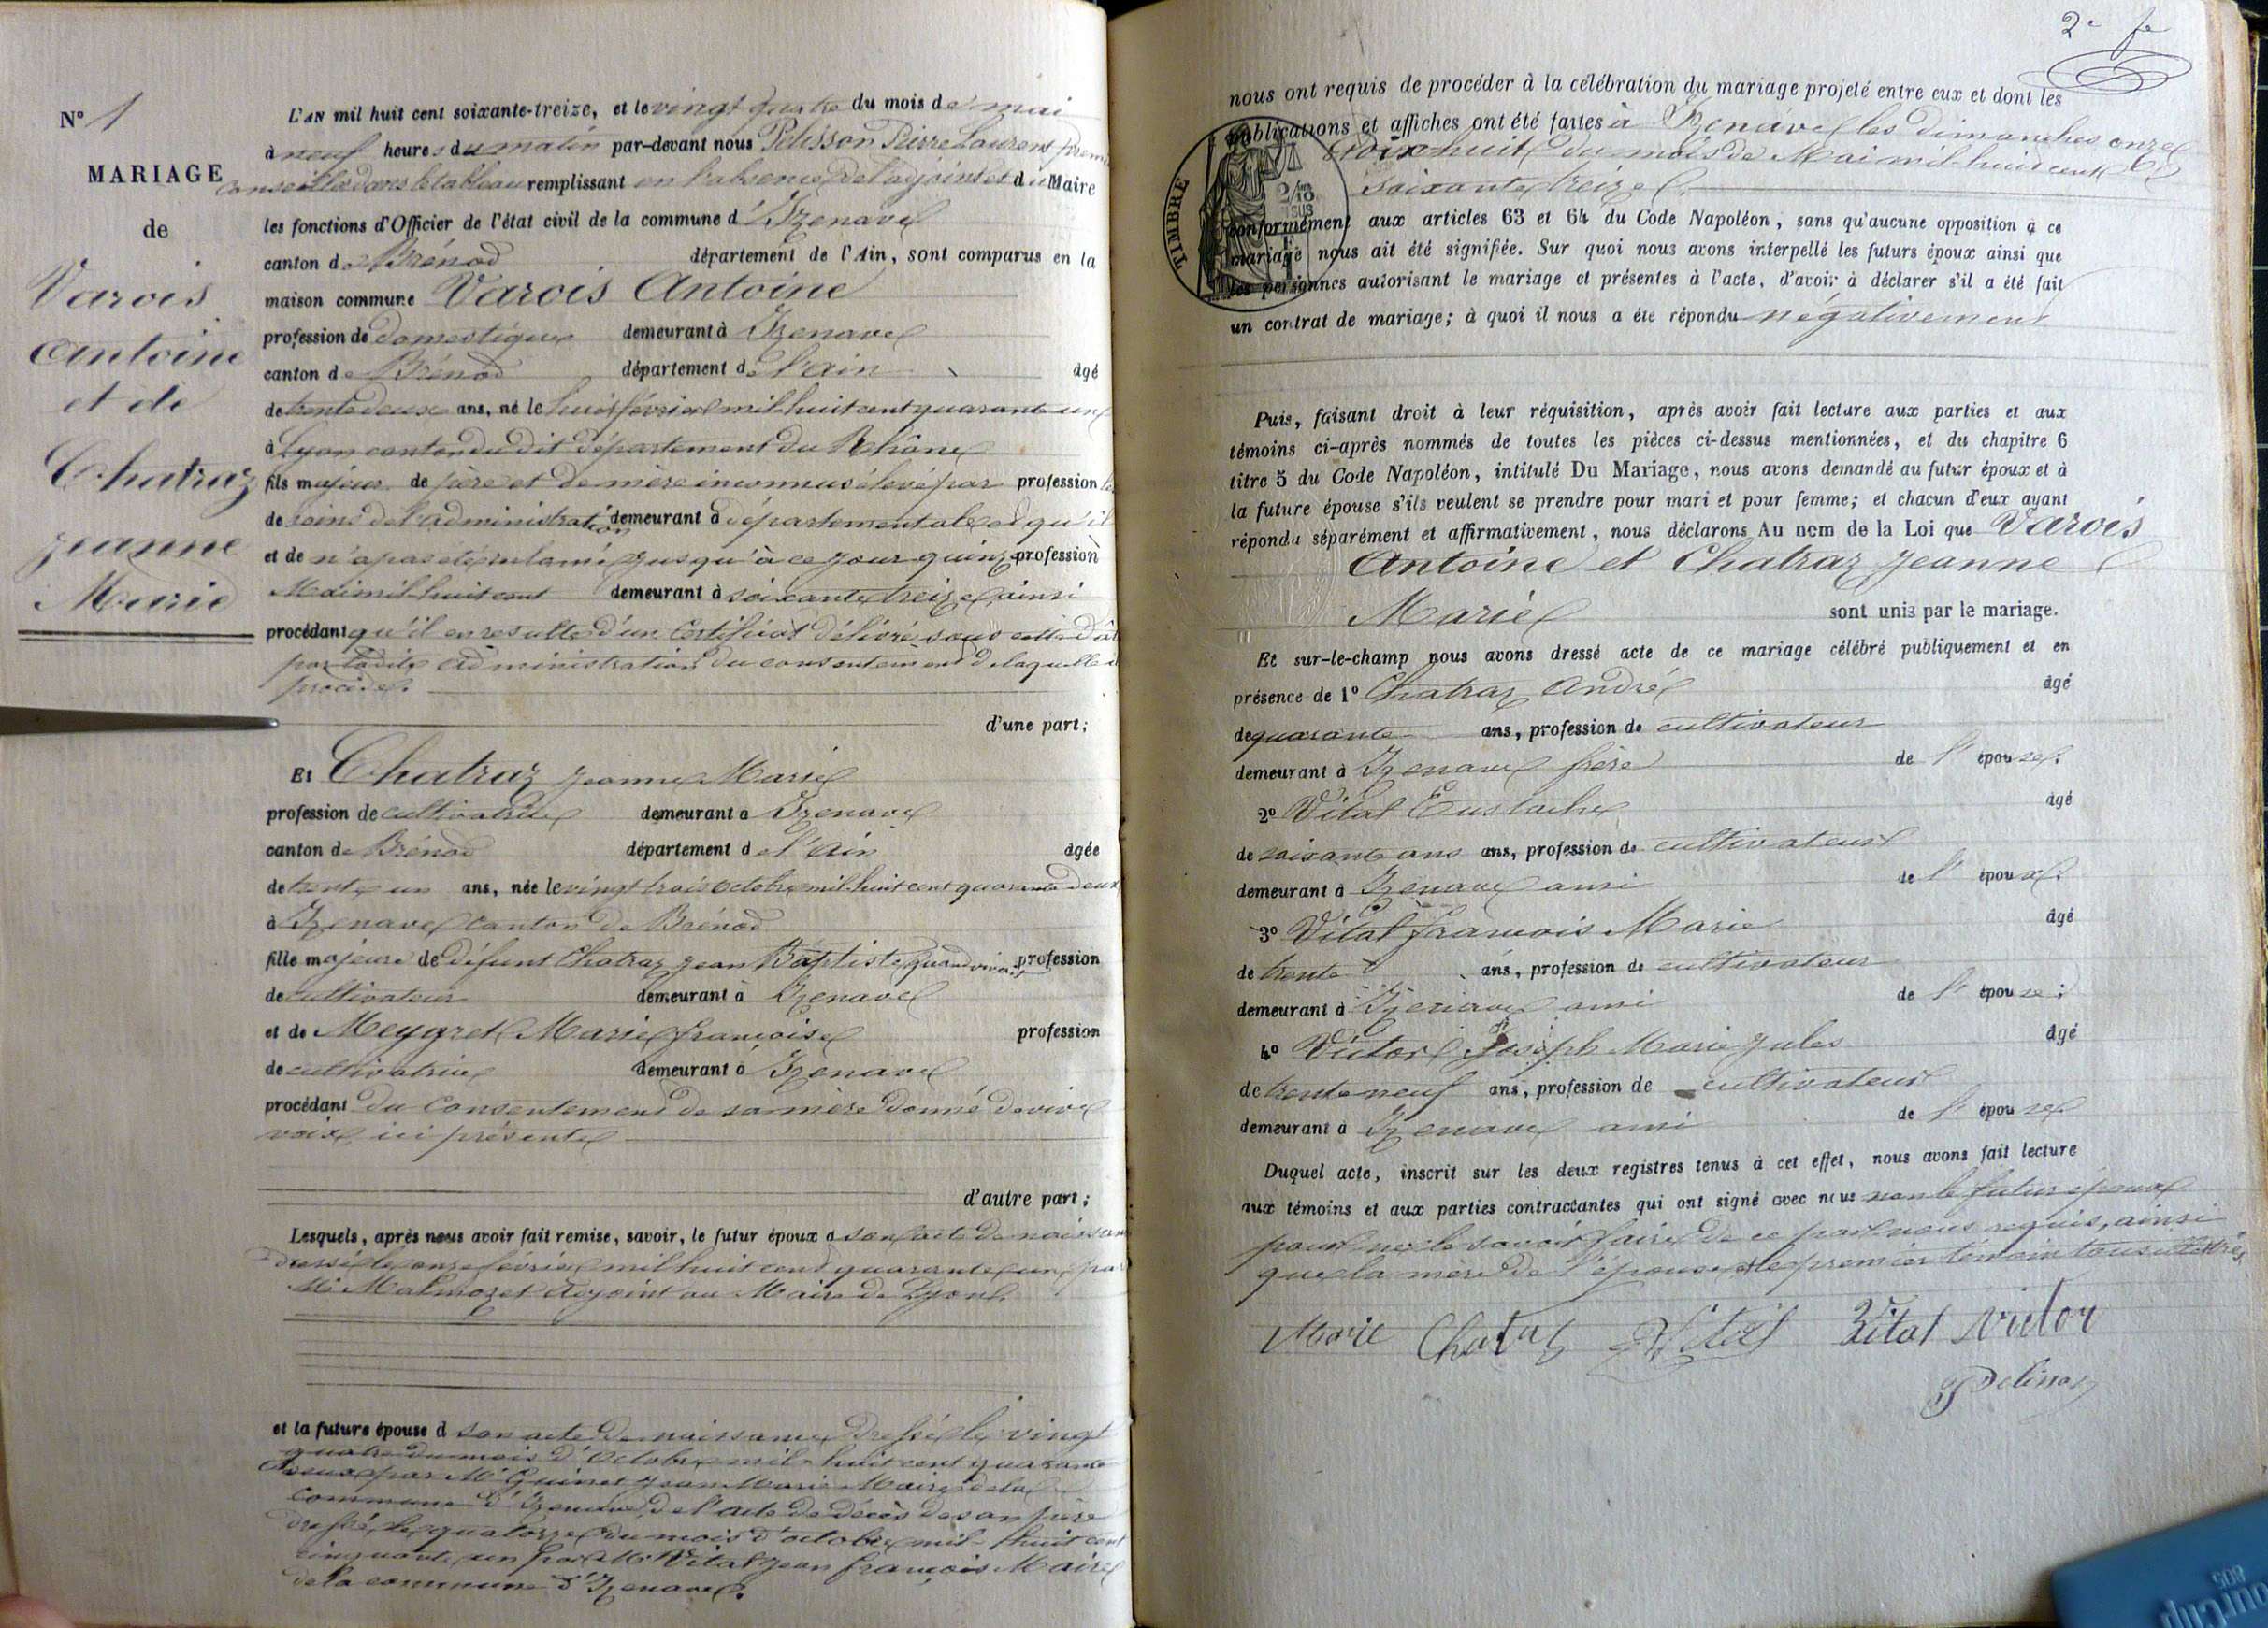 N° 1
MARIAGE
de
Varois
Antoine
et de
Chatraz
Jeanne
Marie
L'AN mil huit cent soixante-treize, et le vingt quatre du mois de mai
à neuf heures du matin par-devant nous Pelisson Pierre Laurent
conseiller dans le tableau remplissant en l'absence de l'adjoint et du Maire
les fonctions d'Officier de l'état civil de la commune d'Izenave
canton de Brénod département de l'Ain, sont comparus en la
maison commune Varois Antoine
profession de domestique demeurant à Izenave
canton de Brénod département de l'ain âgé
de trente deux ans, né le février mil huit cent quarante un
à Lyon canton du dit département du Rhône
fils majeur de père et de mère inconnus élevé par profession les
de soins de l'administration demeurant à départementale et qu'il
et de n'a pas été réclamé jusqu'à ce jour quinze profession
Mai mil huit cent demeurant à soixante treize, ainsi
procédant qu'il en resulte d'un Certificat délivré sous cette date
par ladite administration du consentement de laquelle il
procède.
d'une part;
Et Chatraz Jeanne Marie
profession de cultivatrice demeurant à Izenave
canton de Brénod département de l'Ain âgée
de trente un ans, née le vingt trois octobre mil huit cent quarante deux
à Izenave Canton de Brénod
fille majeure de défunt Chatraz Jean Baptiste, quand vivait profession
de cultivateur demeurant à Izenave
et de Meygret Marie françoise profession
de cultivatrice demeurant à Izenave
procédant du Consentement de sa mère donné de vive
voix, ici présente
d'autre part;
Lesquels, après nous avoir fait remise, savoir, le futur époux d son acte de naissance
dressé le onze février mil huit cent quarante un, par
Mr adjoint au Maire de Lyon.
et la future épouse d son acte de naissance dressé le vingt
quatre du mois d'Octobre mil huit cent quarante
deux par Mr Guinet Jean Marie Maire de la
commune d'Izenave, de l'acte de décès de son père
dressé le quatorze du mois d'octobre mil huit cent
cinquante un par Mr Vital Jean françois Maire
de la commune d'Izenave.
2e
nous ont requis de procéder à la célébration du mariage projeté entre eux et dont les
publications et affiches ont été faites à Izenave les dimanches onze
et dix huit du mois de Mai mil huit cent
soixante treize
TIMBRE
2/10
SUS
conformément aux articles 63 et 64 du Code Napoléon, sans qu'aucune opposition à ce
mariage nous ait été signifiée. Sur quoi nous avons interpellé les futurs époux ainsi que
les personnes autorisant le mariage et présentes à l'acte, d'avoir à déclarer s'il a été fait
un contrat de mariage; à quoi il nous a été répondu négativement
Puis, faisant droit à leur réquisition, après avoir fait lecture aux parties et aux
témoins ci-après nommés de toutes les pièces ci-dessus mentionnées, et du chapitre 6
titre 5 du Code Napoléon, intitulé Du Mariage, nous avons demandé au futur époux et à
la future épouse s'ils veulent se prendre pour mari et pour femme; et chacun d'eux ayant
répondu séparément et affirmativement, nous déclarons Au nom de la Loi que Varois
Antoine et Chatraz Jeanne
Marie sont unis par le mariage.
Et sur-le-champ nous avons dressé acte de ce mariage célébré publiquement et en
présence de 1° Chatraz André âgé
de quarante ans, profession de cultivateur
demeurant à Izenave frère de l'épouse.
2° Vital Eustache âgé
de soixante ans ans, profession de cultivateur
demeurant à Izenave ami de l'époux.
3° Vital françois Marie âgé
de trente ans, profession de cultivateur
demeurant à Izenave ami de l'épouse;
4° Victor Joseph Marie Jules âgé
de trente neuf ans, profession de cultivateur
demeurant à Izenave ami de l'épouse
Duquel acte, inscrit sur les deux registres tenus à cet effet, nous avons fait lecture
aux témoins et aux parties contractantes qui ont signé avec nous non le futur époux
pour ne le savoir faire de ce par nous requis, ainsi
que la mère de l'épouse et le premier témoin tous illettrés
Marie Chatraz Vital Vital Victor
Pelisson